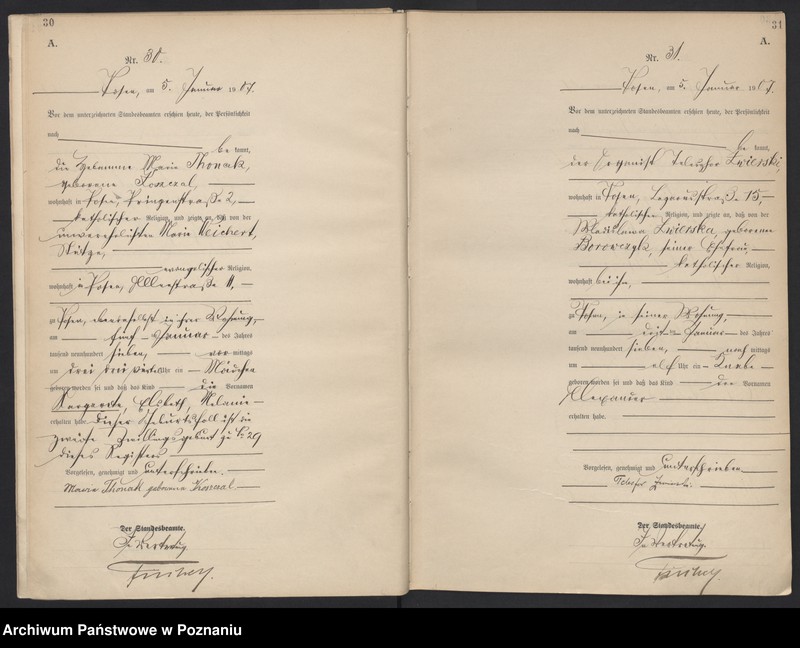 30
A.
Nr. 30.
Posen, am 5. Januar 1907.
Vor dem unterzeichneten Standesbeamten erschien heute, der Persönlichkeit
nach
be kannt,
die Hebamme Marie Thonak,
geborene Koszczal,
wohnhaft in Posen, Bringenstraße 2,
katholischer Religion, und zeigte an, daß von der
unverehelichten Marie Weichert,
Stütze,
evangelischer Religion,
wohnhaft in Posen, 11,
zu Posen, in ihrer Wohnung,
am fünften Januar des Jahres
tausend neunhundert sieben, vor mittags
um drei drei viertel Uhr ein Mädchen
geboren worden sei und daß das Kind die Vornamen
Margarete, Elsbeth, Melanie
erhalten habe. Dieser Geburtsfall ist die
zweite Zwillingsgeburt zu Nr 29
dieses Registers
Vorgelesen, genehmigt und unterschrieben.
Marie Thonak geborene Koszczal
Der Standesbeamte.
In Vertretung.
31
A.
Nr. 31.
Posen, am 5. Januar 1907.
Vor dem unterzeichneten Standesbeamten erschien heute, der Persönlichkeit
nach
be kannt,
der Organist Telesphor Zwierski,
wohnhaft in Posen, 15,
katholischer Religion, und zeigte an, daß von der
Wladislawa Zwierska, geborene
Borowczyk, seiner Ehefrau,
katholischer Religion,
wohnhaft bei ihm,
zu Posen, in seiner Wohnung,
am dritten Januar des Jahres
tausend neunhundert sieben, nach mittags
um elf Uhr ein Knabe
geboren worden sei und daß das Kind den Vornamen
Alexander
erhalten habe.
Vorgelesen, genehmigt und unterschrieben
Telesfor
Der Standesbeamte.
In Vertretung.
Archiwum Państwowe w Poznaniu